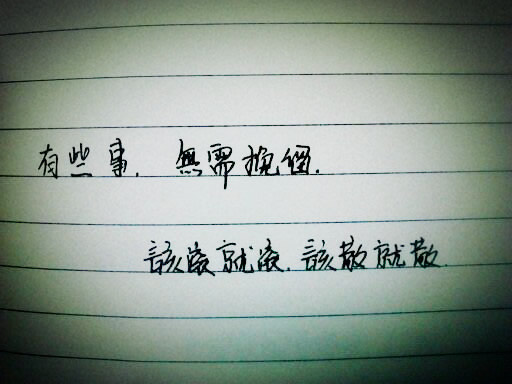 有些事. 無需挽留.
該滾就滾. 該散就散.